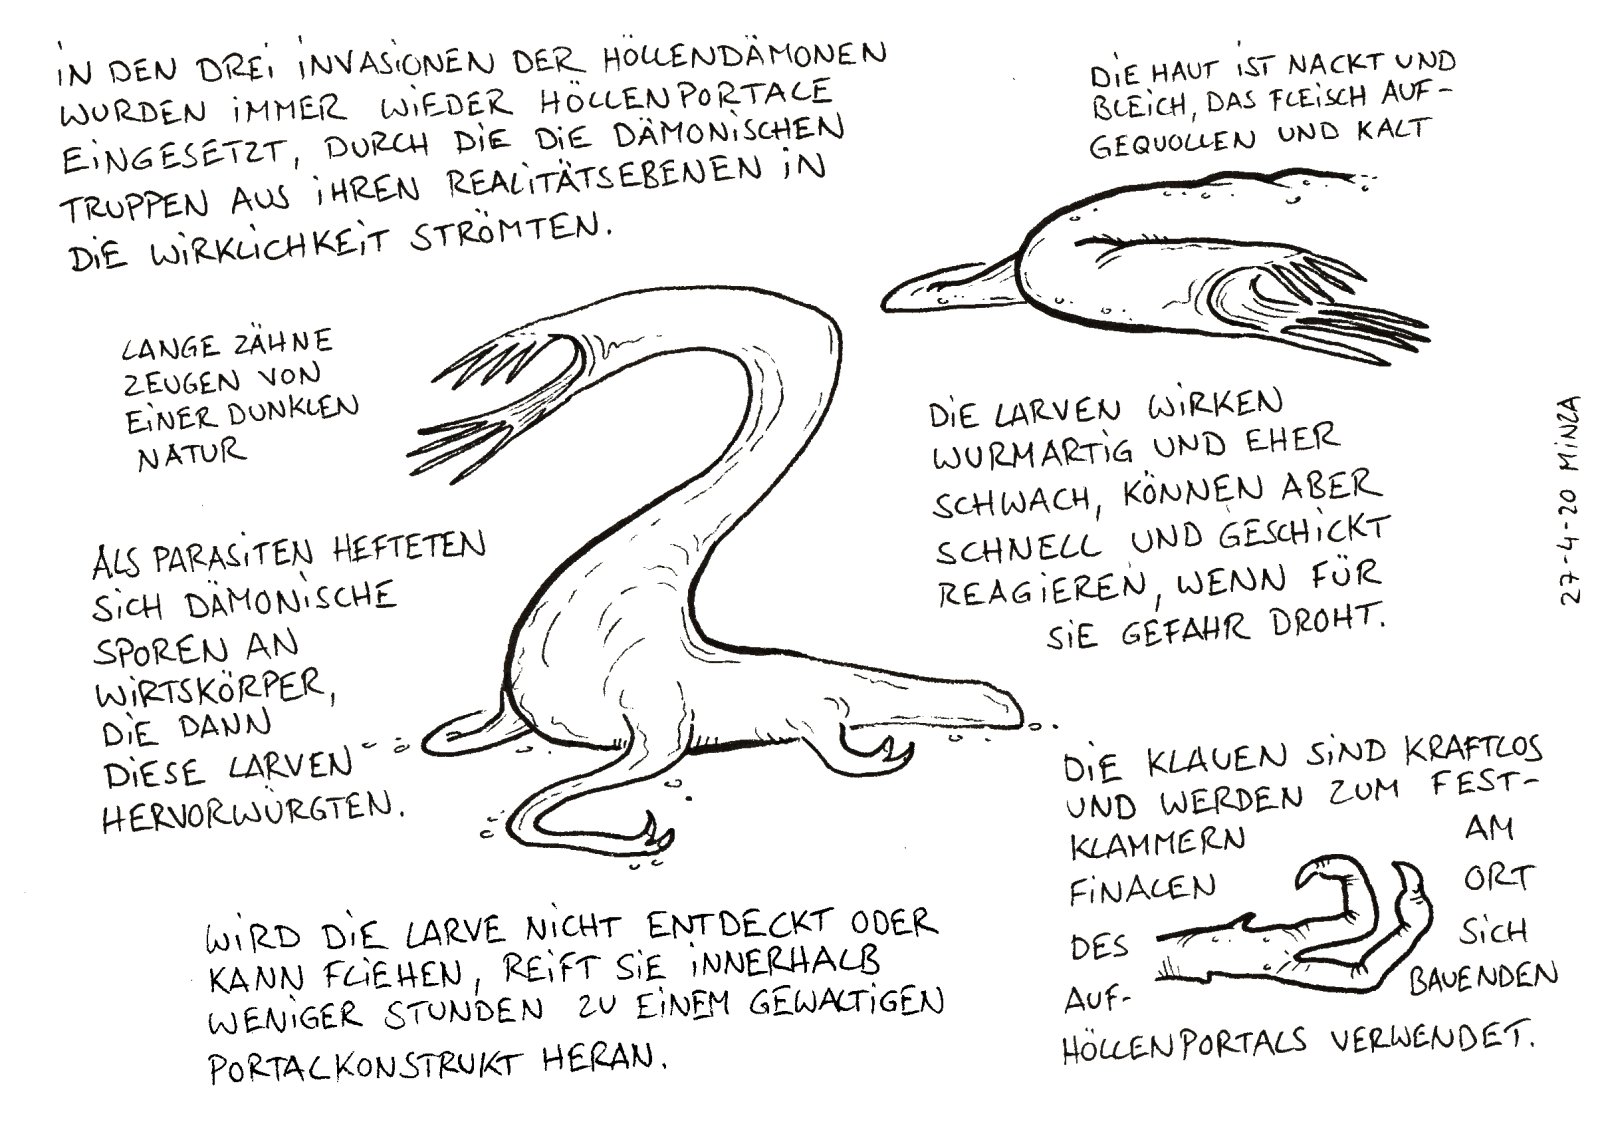 IN DEN DREI INVASIONEN DER HÖLLENDÄMONEN
WURDEN IMMER WIEDER HÖLLENPORTALE
EINGESETZT, DURCH DIE DIE DÄMONISCHEN
TRUPPEN AUS IHREN REALITÄTSEBENEN IN
DIE WIRKLICHKEIT STRÖMTEN.
DIE HAUT IST NACKT UND
BLEICH, DAS FLEISCH AUF-
GEQUOLLEN UND KALT
LANGE ZÄHNE
ZEUGEN VON
EINER DUNKLEN
NATUR
DIE LARVEN WIRKEN
WURMARTIG UND EHER
SCHWACH, KÖNNEN ABER
SCHNELL UND GESCHICKT
REAGIEREN, WENN FÜR
SIE GEFAHR DROHT.
ALS PARASITEN HEFTETEN
SICH DÄMONISCHE
SPOREN AN
WIRTSKÖRPER,
DIE DANN
DIESE LARVEN
HERVORWÜRGTEN.
DIE KLAUEN SIND KRAFTLOS
UND WERDEN ZUM FEST-
KLAMMERN AM
FINALEN ORT
DES SICH
AUF- BAUENDEN
HÖLLENPORTALS VERWENDET.
WIRD DIE LARVE NICHT ENTDECKT ODER
KANN FLIEHEN, REIFT SIE INNERHALB
WENIGER STUNDEN ZU EINEM GEWALTIGEN
PORTALKONSTRUKT HERAN.
27-4-20 MINZA